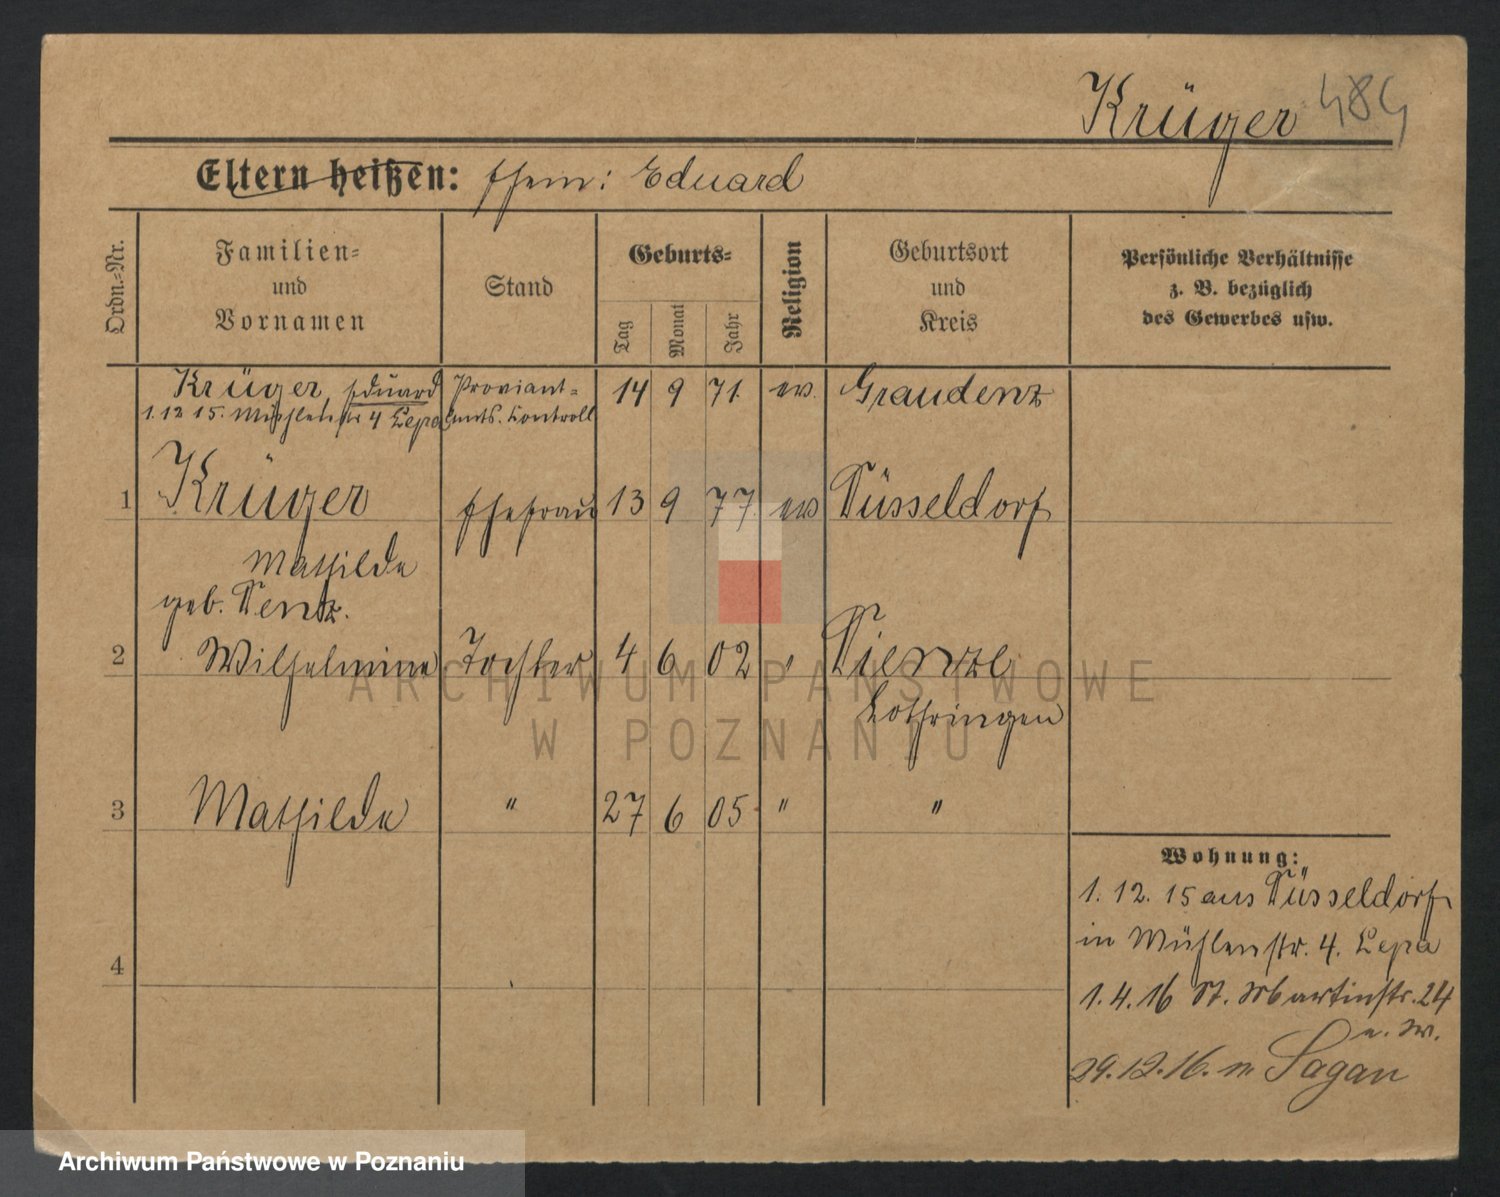 Krüger 484
Eltern heißen: Ehem: Eduard
Ordn.-Nr.
Familien-
und
Vornamen
Stand
Geburts-
Tag
Monat
Jahr
Religion
Geburtsort
und
Kreis
Persönliche Verhältnisse
z. B. bezüglich
des Gewerbes usw.
Krüger, Eduard Proviant- 14 9 71. ev. Graudenz
1. 12 15. Mühlenstr 4 Lepa Amts. Controll
1 Krüger Ehefrau 13 9 77 ev Düsseldorf
Mathilde
geb. Denz.
2 Wilhelmine Tochter 4 6 02 " Dieuze
Lothringen
3 Mathilde " 27 6 05 " "
4
Wohnung:
1. 12. 15 aus Düsseldorf
in Mühlenstr. 4. Lepa
1. 4. 16 St. Martinstr. 24
29. 12. 16. n. Sagan
ARCHIWUM PAŃSTWOWE
W POZNANIU
Archiwum Państwowe w Poznaniu